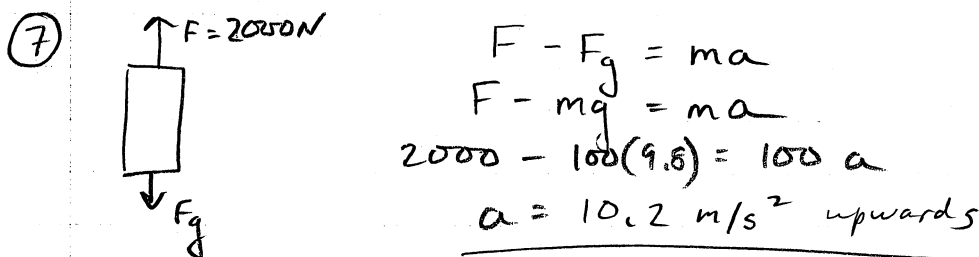 7
F = 2000N
Fg
F - Fg = ma
F - mg = ma
2000 - 100(9.8) = 100 a
a = 10.2 m/s² upwards